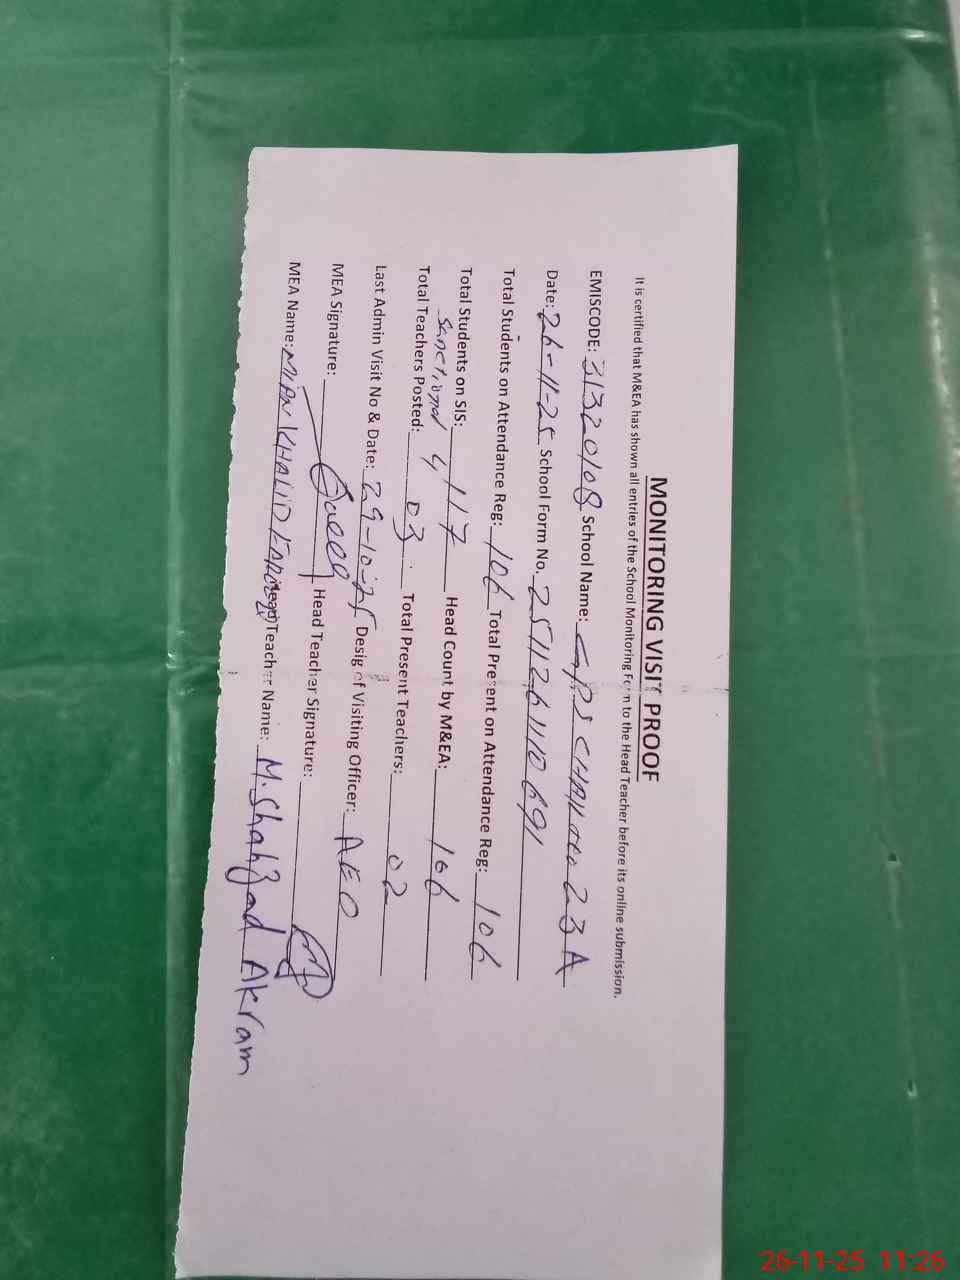 MONITORING VISIT PROOF
It is certified that M&EA has shown all entries of the School Monitoring Form to the Head Teacher before its online submission.
EMISCODE: 31320108 School Name: GPS CHAK No 23 A
Date: 26-11-25 School Form No. 2511261110691
Total Students on Attendance Reg: 106 Total Present on Attendance Reg: 106
Total Students on SIS: 117 Head Count by M&EA: 106
Sanctioned 4
Total Teachers Posted: 03 Total Present Teachers: 02
Last Admin Visit No & Date: 29-10-25 Desig of Visiting Officer: AEO
MEA Signature: Head Teacher Signature:
MEA Name: MIAN KHALID FAROOQ Head Teacher Name: M. Shahzad Akram
26-11-25 11:26